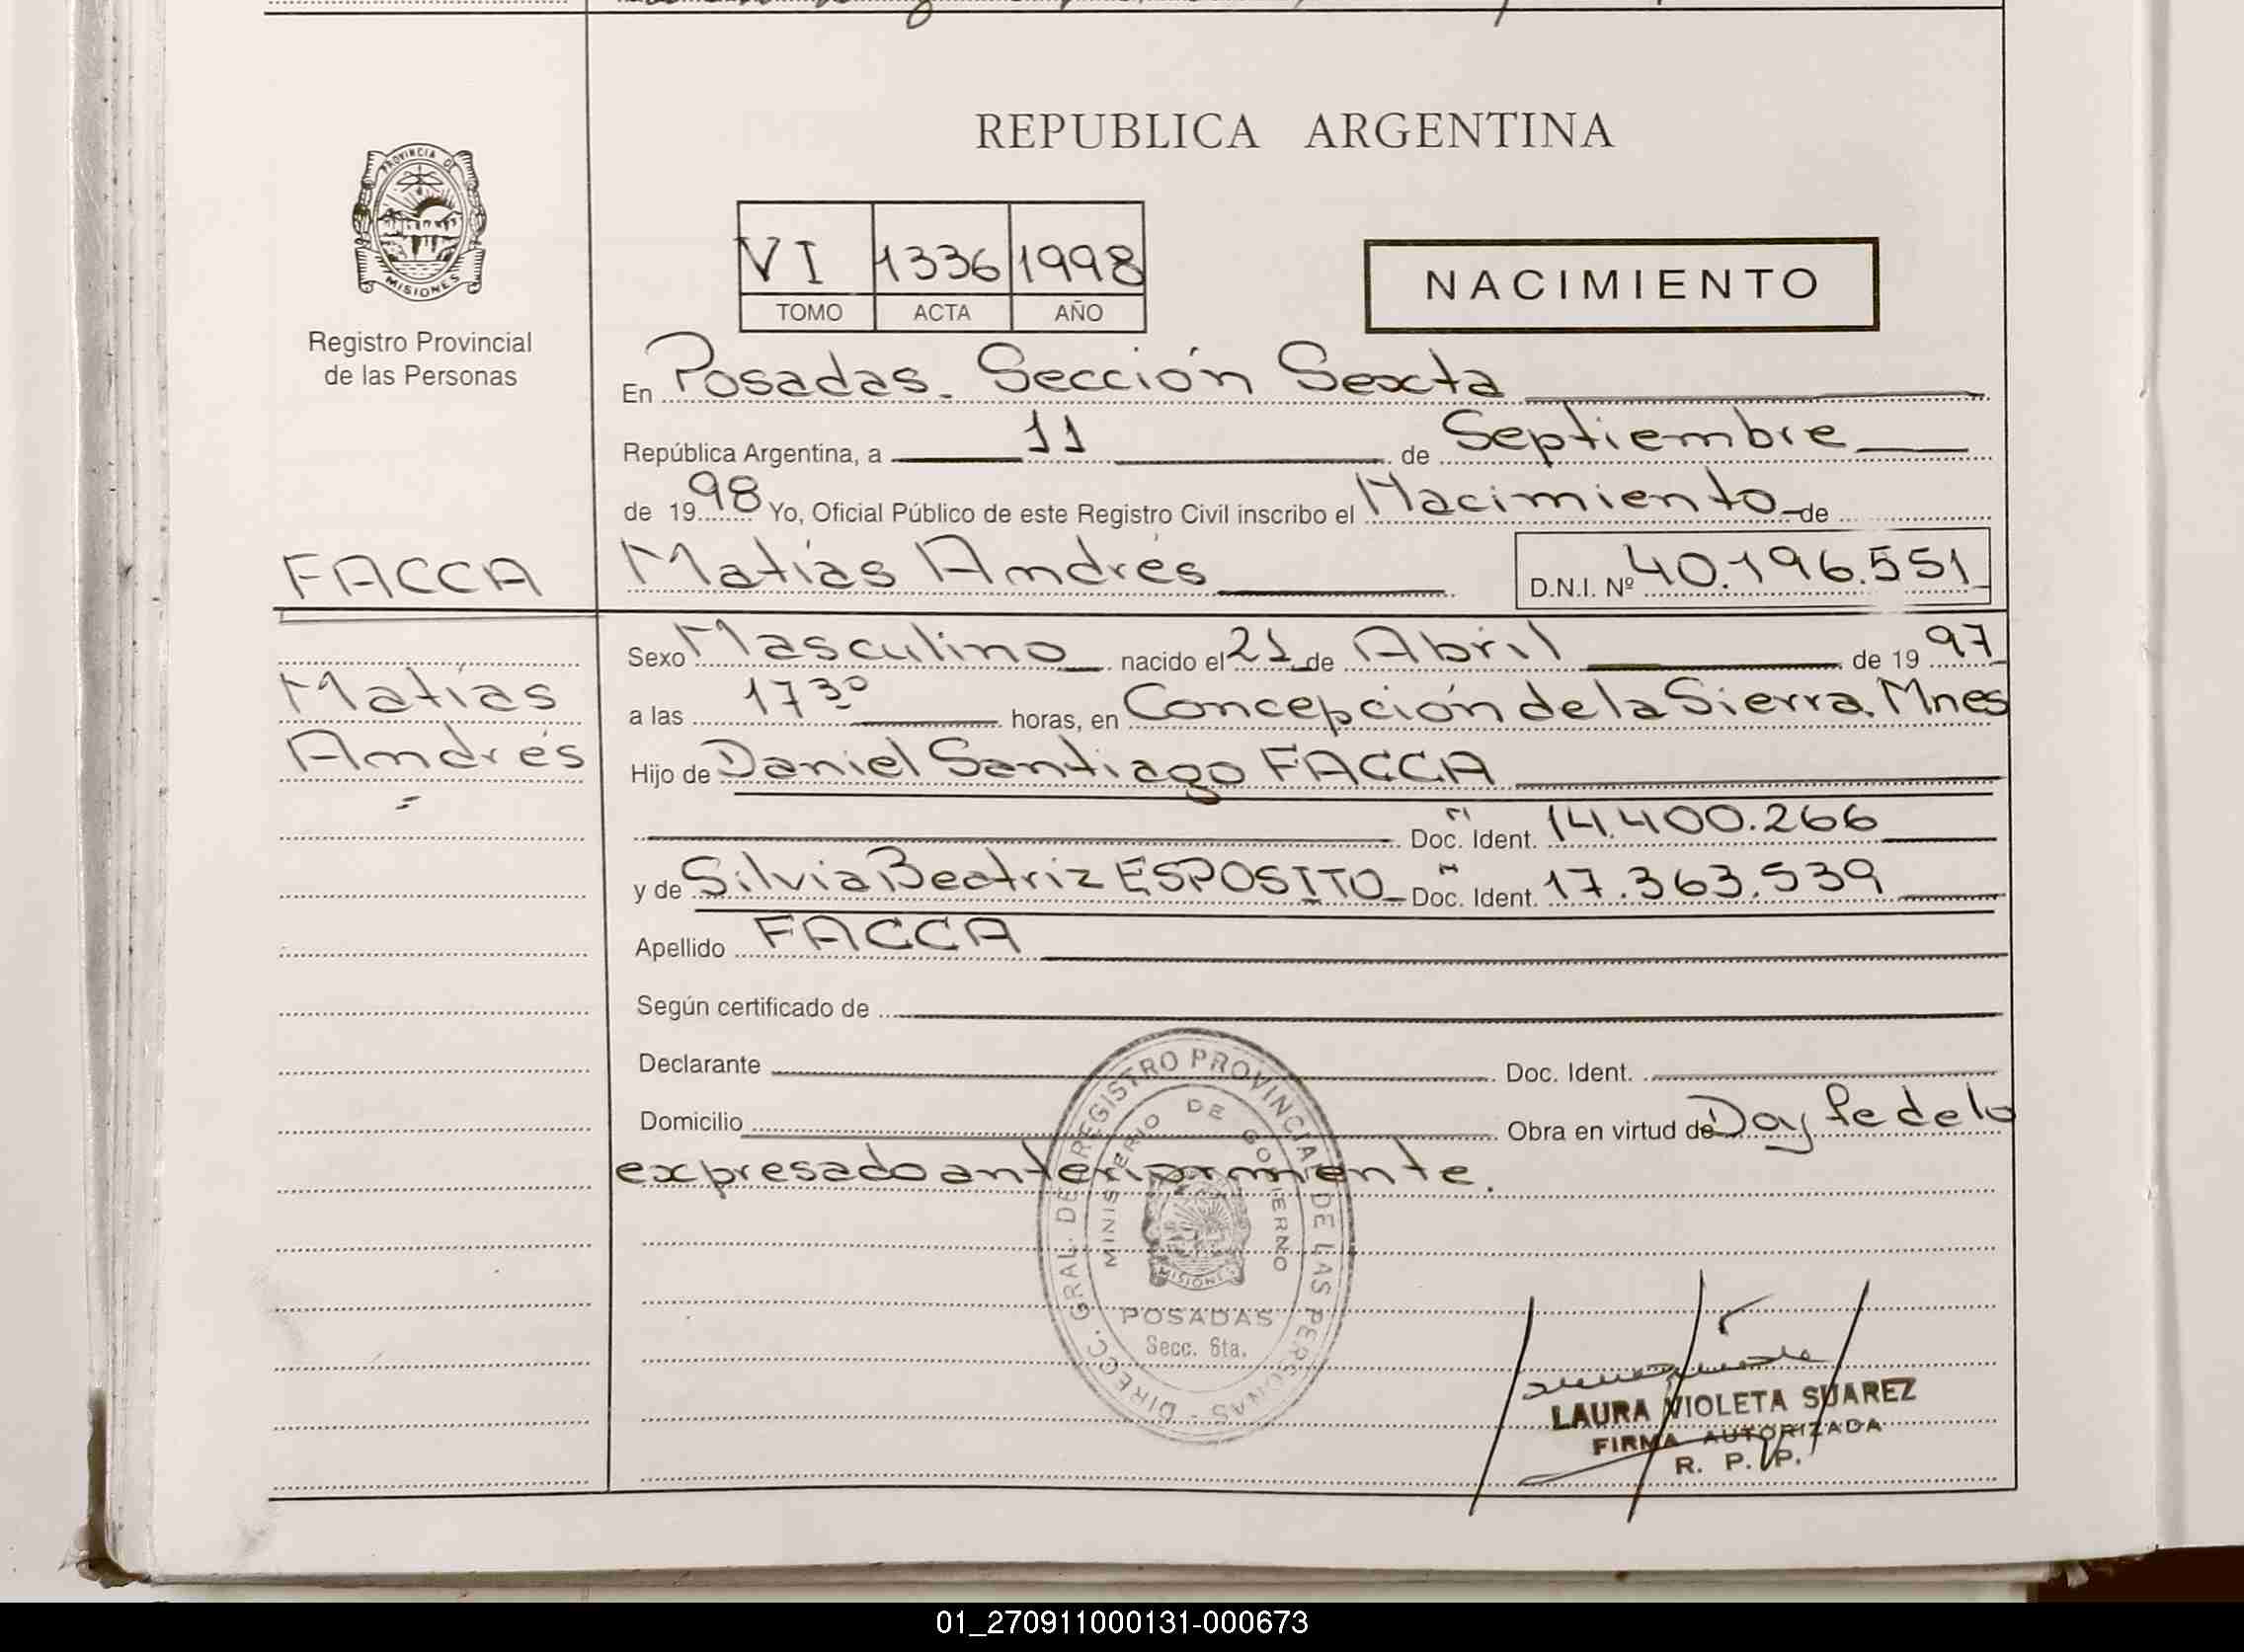 REPUBLICA ARGENTINA
PROVINCIA DE
MISIONES
Registro Provincial
de las Personas
VI 1336 1998
TOMO ACTA AÑO
NACIMIENTO
En Posadas. Sección Sexta
República Argentina, a 11 de Septiembre
de 1998 Yo, Oficial Público de este Registro Civil inscribo el Nacimiento de
FACCA
Matías Andrés D.N.I. Nº 40.196.551
Matías
Andrés
Sexo Masculino nacido el 21 de Abril de 1997
a las 17 30 horas, en Concepción de la Sierra. Mnes
Hijo de Daniel Santiago FACCA
Doc. Ident. 14.400.266
y de Silvia Beatriz ESPOSITO Doc. Ident. 17.363.539
Apellido FACCA
Según certificado de
Declarante Doc. Ident.
Domicilio Obra en virtud de Doy fe de lo
expresado anteriormente.
DIRECC. GRAL. DE REGISTRO PROVINCIAL DE LAS PERSONAS
MINISTERIO DE GOBIERNO
MISIONES
POSADAS
Secc. 6ta.
LAURA VIOLETA SUAREZ
FIRMA AUTORIZADA
R. P. P.
01_270911000131-000673